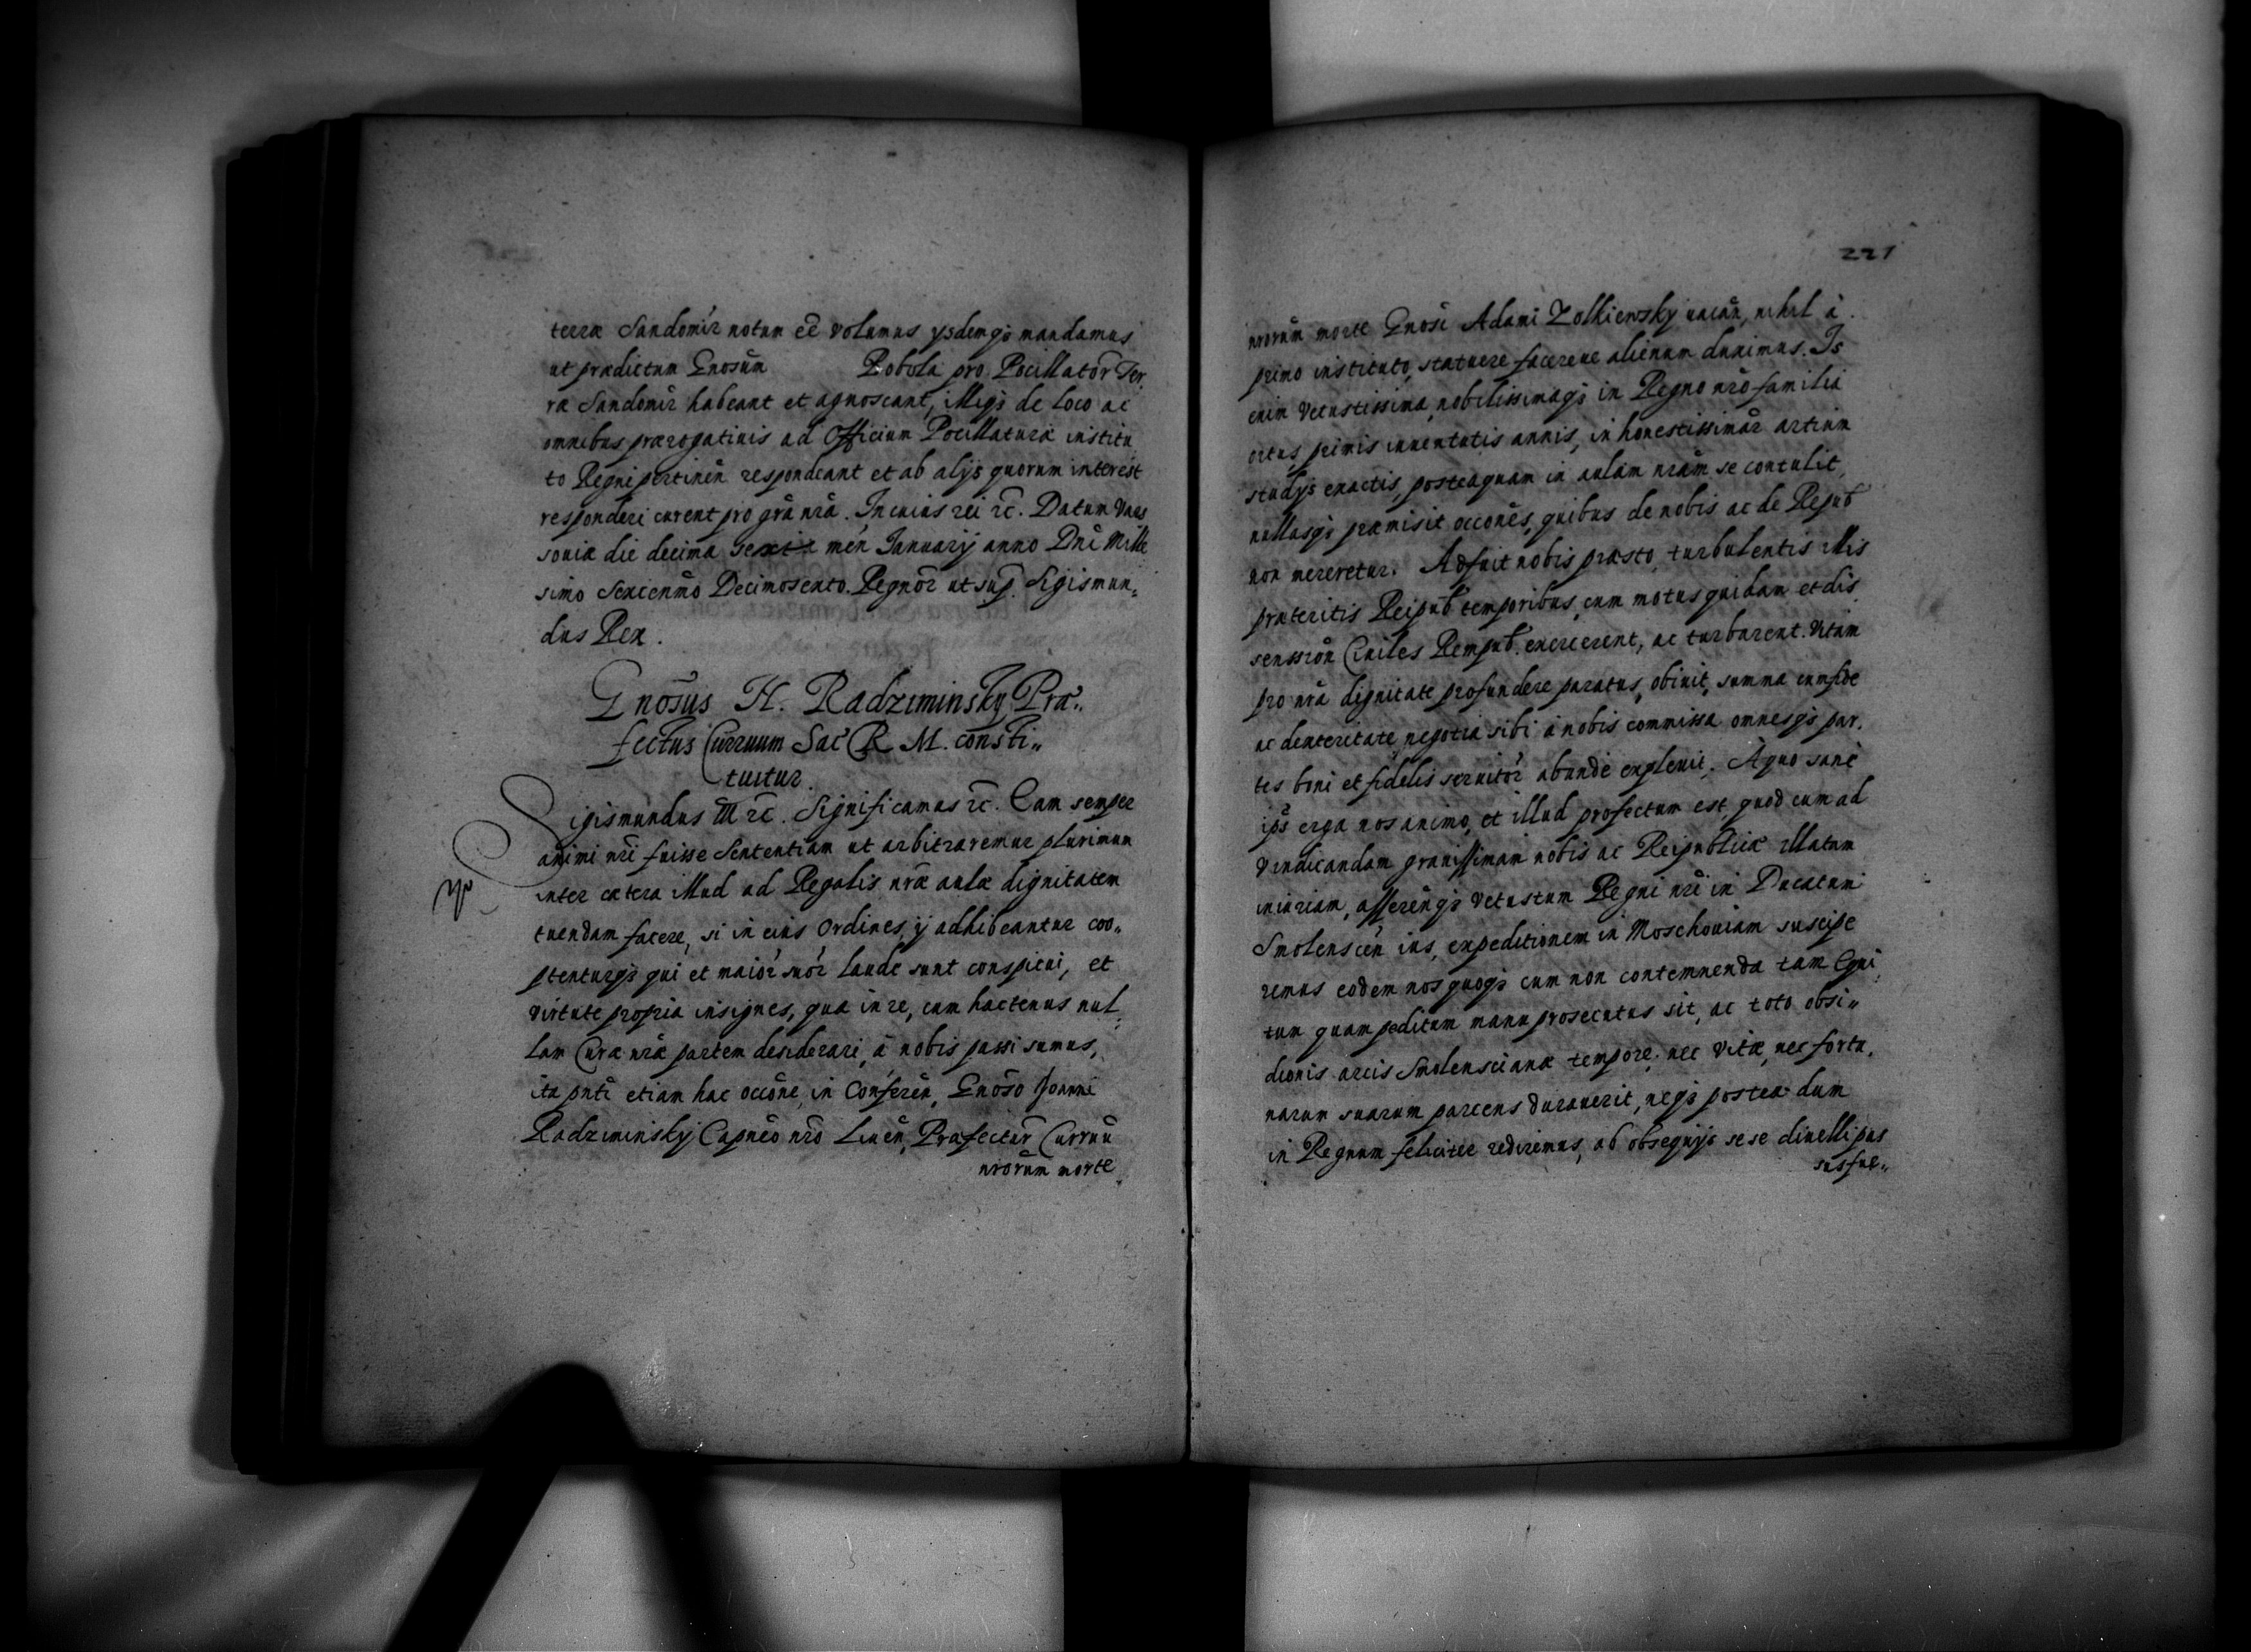 terræ Sandomir̄ notum eē volumus ysdemq̄ mandamus
ut prædictum Gnosūm Bobola pro Pocillatōr Ter,
ræ Sandomir̄ habeant et agnoscant, illiq̄ de loco ac
omnibus prærogatiuis ad Officium Pocillaturæ institu
to Regni pertineñ respondeant et ab alijs quorum interest
responderi curent pro grã nrã. In cuius rei rc̄. Datum Vars
souiæ die decima sexta meñ Januarij anno Dni Mille
simo Sexcenmo Decimosexto. Regnor̄ ut sup. Sigismun,
dus Rex.
Gnōsus H. Radziminsky Præ,
fectus Curruum Sac R. M. consti„
tuitur.
Sigismundus III rc̄. Significamus rc̄. Cum semper
animi nri fuisse Sententiam ut arbitraremur plurimum
inter cætera illud ad Regalis nræ aulæ dignitatem
tuendam facere, si in eius Ordines, ij adhibeantur coo„
ptenturq̄ qui et maior̄ suor̄ laude sunt conspicui, et
virtute propria insignes, qua in re, cum hactenus nul,
lam Curæ nræ partem desiderari, à nobis passi sumus,
ita pnti etiam hac occōne, in Conferen̄, Gnōso Joanni
Radziminsky Capneo nro Liueñ, Præfectur̄ Curruū
nrorūm morte
221
nrorūm morte Gnosi Adami Zolkiewsky uacañ, nihil à
primo instituto, statuere facereue alienum duximus. Is
enim vetustissima, nobilissimaq̄ in Regno nro familia
ortus, primis iuuentutis annis, in honestissimar̄ artium
studijs exactis, posteaquam in aulam nrãm se contulit,
nullasq̄ præmisit occōnes, quibus de nobis ac de Repub
non mereretur. Adfuit nobis præsto, turbulentis illis
præteritis Reipub temporibus, cum motus quidam et dis
sension̄ Ciuiles Rempub. exercerent, ac turbarent. Vitam
pro nrã dignitate profundere paratus, obiuit, summa cum fide
ac dexteritate negotia sibi à nobis commissa omnesq̄ par,
tes boni et fidelis seruitor̄ abunde expleuit. A quo sanè
ips̄ erga nos animo, et illud profectum est, quod cum ad
vindicandam grauissimam nobis ac Reipublicæ illatam
iniuriam, asserenq̄ vetustum Regni nri in Ducatum
Smolensceñ ius, expeditionem in Moschouiam suscipe
remus eodem nos quoq̄ cum non contemnenda tam Equi,
tum quam peditum manu prosecutus sit, ac toto obsi„
dionis arcis Smolenscianæ tempore, nec vitæ, nec fortu,
narum suarum parcens durauerit, neq̄ postea dum
in Regnum feliciter rediremus, ab obsequijs sese diuelli pas
sus fue„